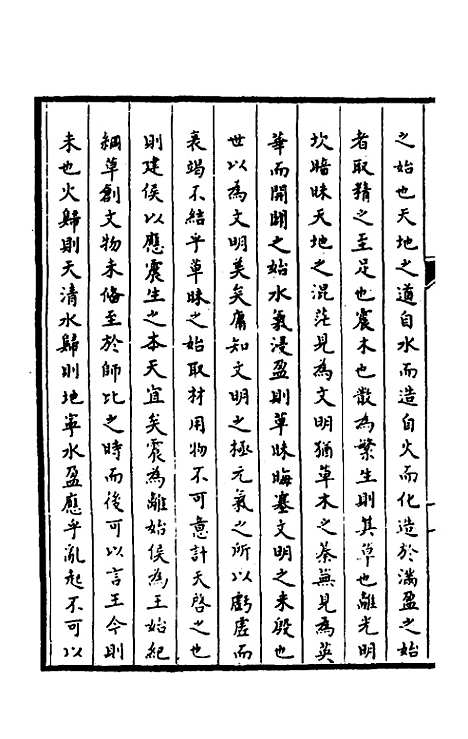 之始也天地之道自水而造自火而化造於滿盈之始
者取精之至足也震木也散為繁生則其草也離光明
坎暗昧天地之混茫見為文明猶草木之蓁蕪見為英
華而開闢之始水氣浸盈則草昧晦塞文明之未殷也
世以為文明美矣庸知文明之極元氣之所以虧虛而
衰竭不結乎草昧之始取材用物不可意計天啓之也
則建侯以應震生之本天宜矣震為離始侯為王始紀
綱草創文物未俻至於師比之時而後可以言王今則
未也火歸則天清水歸則地寧水盈應乎亂起不可以